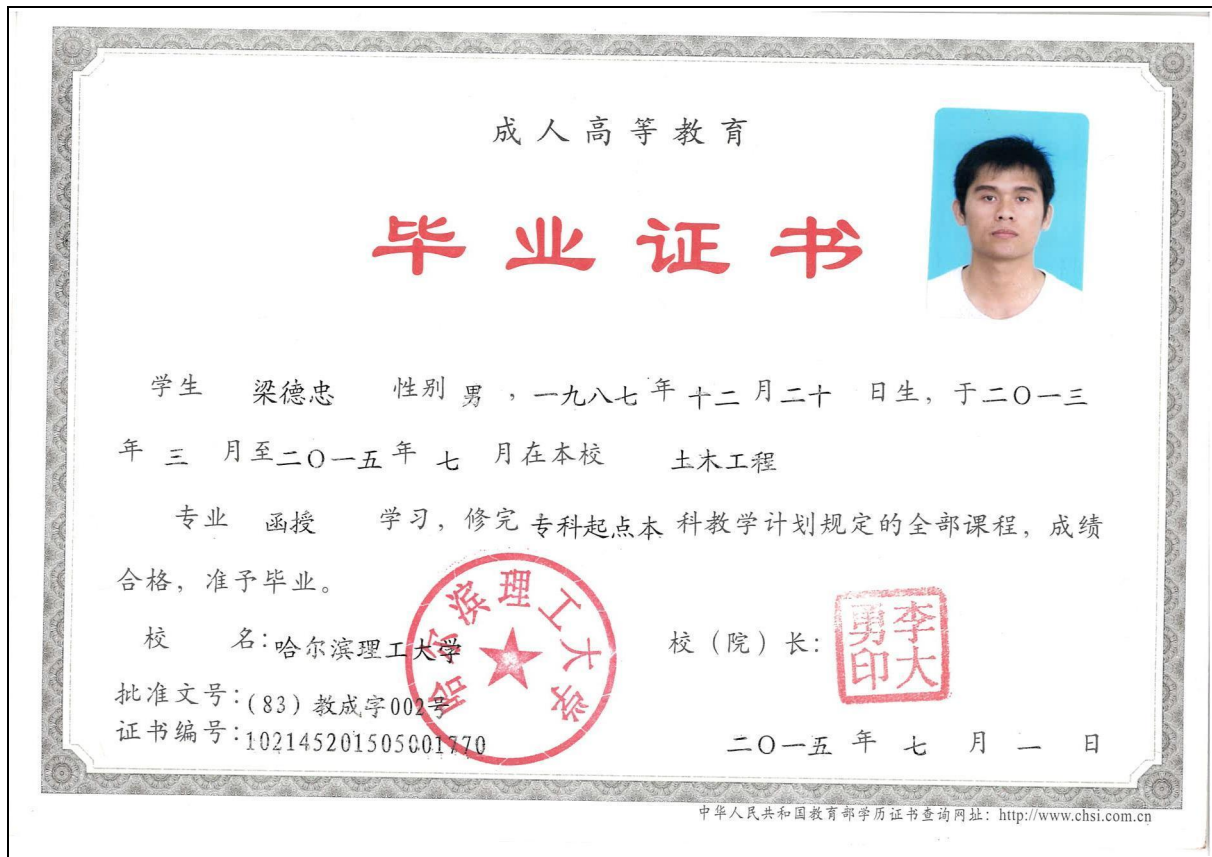 成人高等教育
毕业证书
学生 梁德忠 性别 男 ，一九八七 年 十二 月 二十 日生，于二〇一三
年 三 月至二〇一五 年 七 月在本校 土木工程
专业 函授 学习，修完 专科起点本 科教学计划规定的全部课程，成绩
合格，准予毕业。
校 名：哈尔滨理工大学
校（院）长：
李大勇印
哈尔滨理工大学
批准文号：(83) 教成字002号
证书编号：102145201505001770
二〇一五 年 七 月 一 日
中华人民共和国教育部学历证书查询网址：http://www.chsi.com.cn